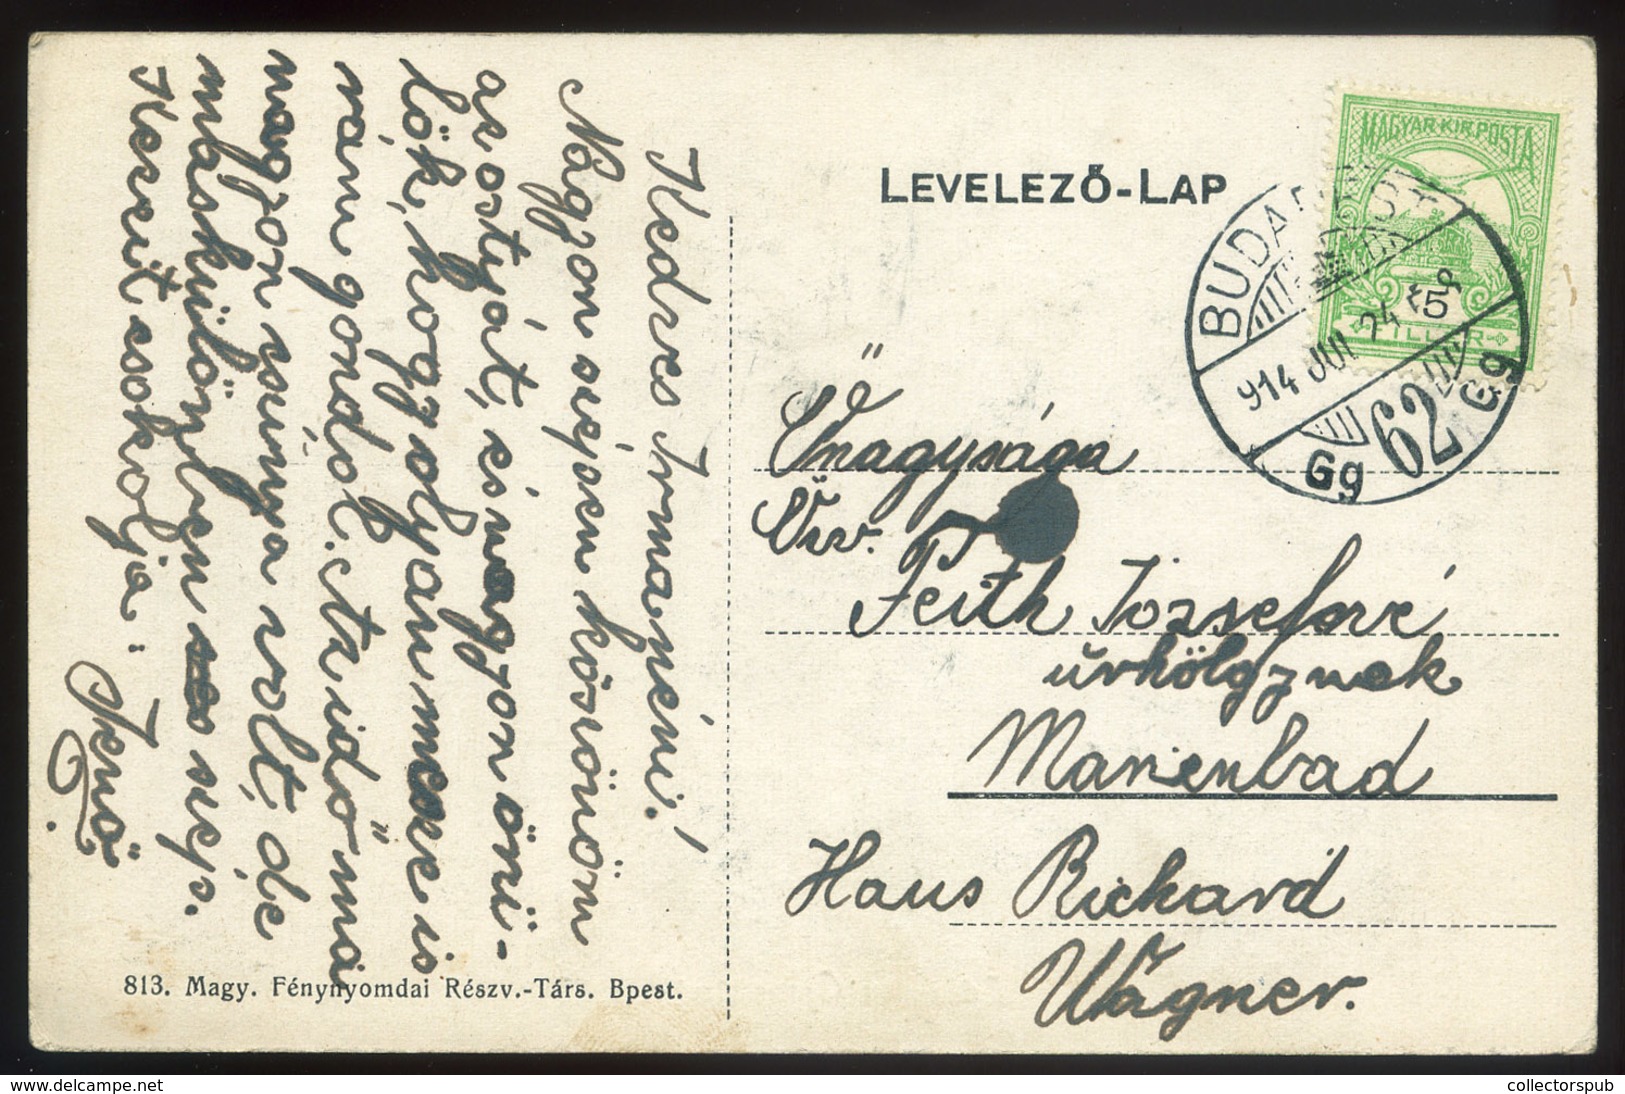 LEVELEZŐ-LAP
MAGYAR KIR. POSTA
FILLÉR
BUDAPEST
914 JUL 24
62
Gg
Kedves Irmanéni!
Nagyon szépen köszönöm
az ostyát, és nagyon örü-
lök, hogy olyan messze is
rám gondol. Ma idő má
nagyon csúnya volt, de
máskülönben szép.
Kezeit csókolja:
Jenő
Őnagysága
Özv.
Feith Józsefné
úrhölgynek
Marienbad
Haus Richard
Wagner.
813. Magy. Fénynyomdai Részv.-Társ. Bpest.
www.delcampe.net
collectorspub